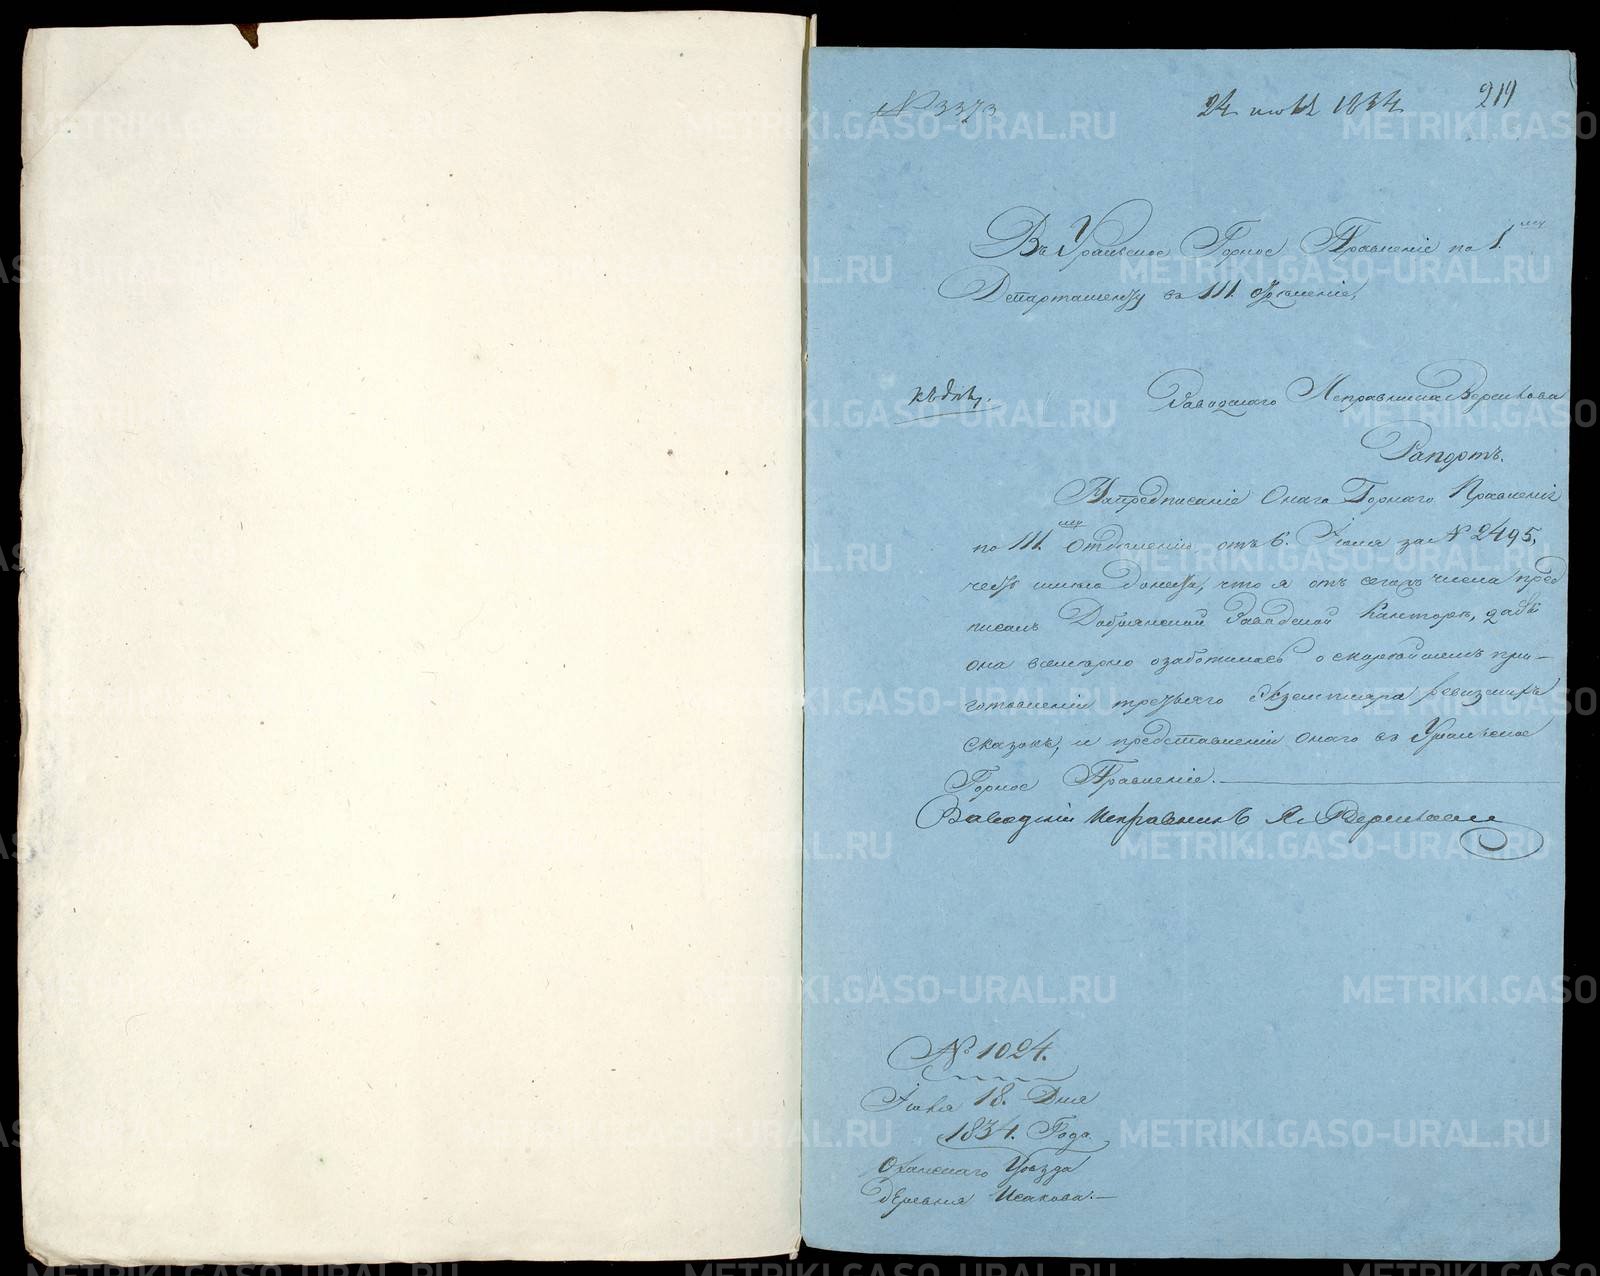 № 3373
24 июля 1834
219
Въ Уральское Горное Правленіе по 1.му
Департаменту въ III. Отделеніе,
Къ делу.
Заводскаго Исправника
Рапортъ.
На предписаніе Онаго Горнаго Правленія
по III.му Отделенію, отъ 6. Іюля за № 2495,
честь имею донести, что я отъ сего числа пред
писалъ Добрянской Заводской Канторе, дабы
она всемерно озаботилась о скорейшемъ при-
готовленіи третьяго Экземпляра ревизскихъ
сказокъ, и представленіи онаго въ Уральское
Горное Правленіе.
Заводскій Исправникъ
№ 1024.
Іюля 18. Дня
1834. Года
Оханскаго Уезда
Деревня Исакова.
METRIKI.GASO-URAL.RU